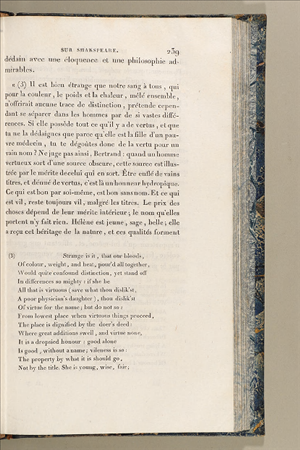 SUR SHAKSPEARE. 239
dédain avec une éloquence et une philosophie ad-
mirables.
« (3) Il est bien étrange que notre sang à tous , qui
pour la couleur , le poids et la chaleur , mêlé ensemble ,
n'offrirait aucune trace de distinction , prétende cepen-
dant se séparer dans les hommes par de si vastes diffé-
rences. Si elle possède tout ce qu'il y a de vertus , et que
tu ne la dédaignes que parce qu'elle est la fille d'un pau-
vre médecin , tu te dégoûtes donc de la vertu pour un
vain nom ? Ne juge pas ainsi , Bertrand : quand un homme
vertueux sort d'une source obscure , cette source est illus-
trée par le mérite de celui qui en sort. Être enflé de vains
titres, et dénué de vertus, c'est là un honneur hydropique.
Ce qui est bon par soi-même, est bon sans nom. Et ce qui
est vil , reste toujours vil , malgré les titres. Le prix des
choses dépend de leur mérite intérieur ; le nom qu'elles
portent n'y fait rien. Hélène est jeune , sage , belle ; elle
a reçu cet héritage de la nature , et ces qualités forment
(3) Strange is it , that our bloods,
Of colour , weight , and heat, pour'd all together,
Would quite confound distinction , yet stand off
In differences so mighty : if she be
All that is virtuous ( save what thou dislik'st,
A poor physician's daughter ) , thou dislik'st
Of virtue for the name ; but do not so :
From lowest place when virtuous things proceed,
The place is dignified by the doer's deed:
Where great additions swell , and virtue none,
It is a dropsied honour : good alone
Is good , without a name ; vileness is so :
The property by what it is should go ,
Not by the title. She is young , wise , fair ;